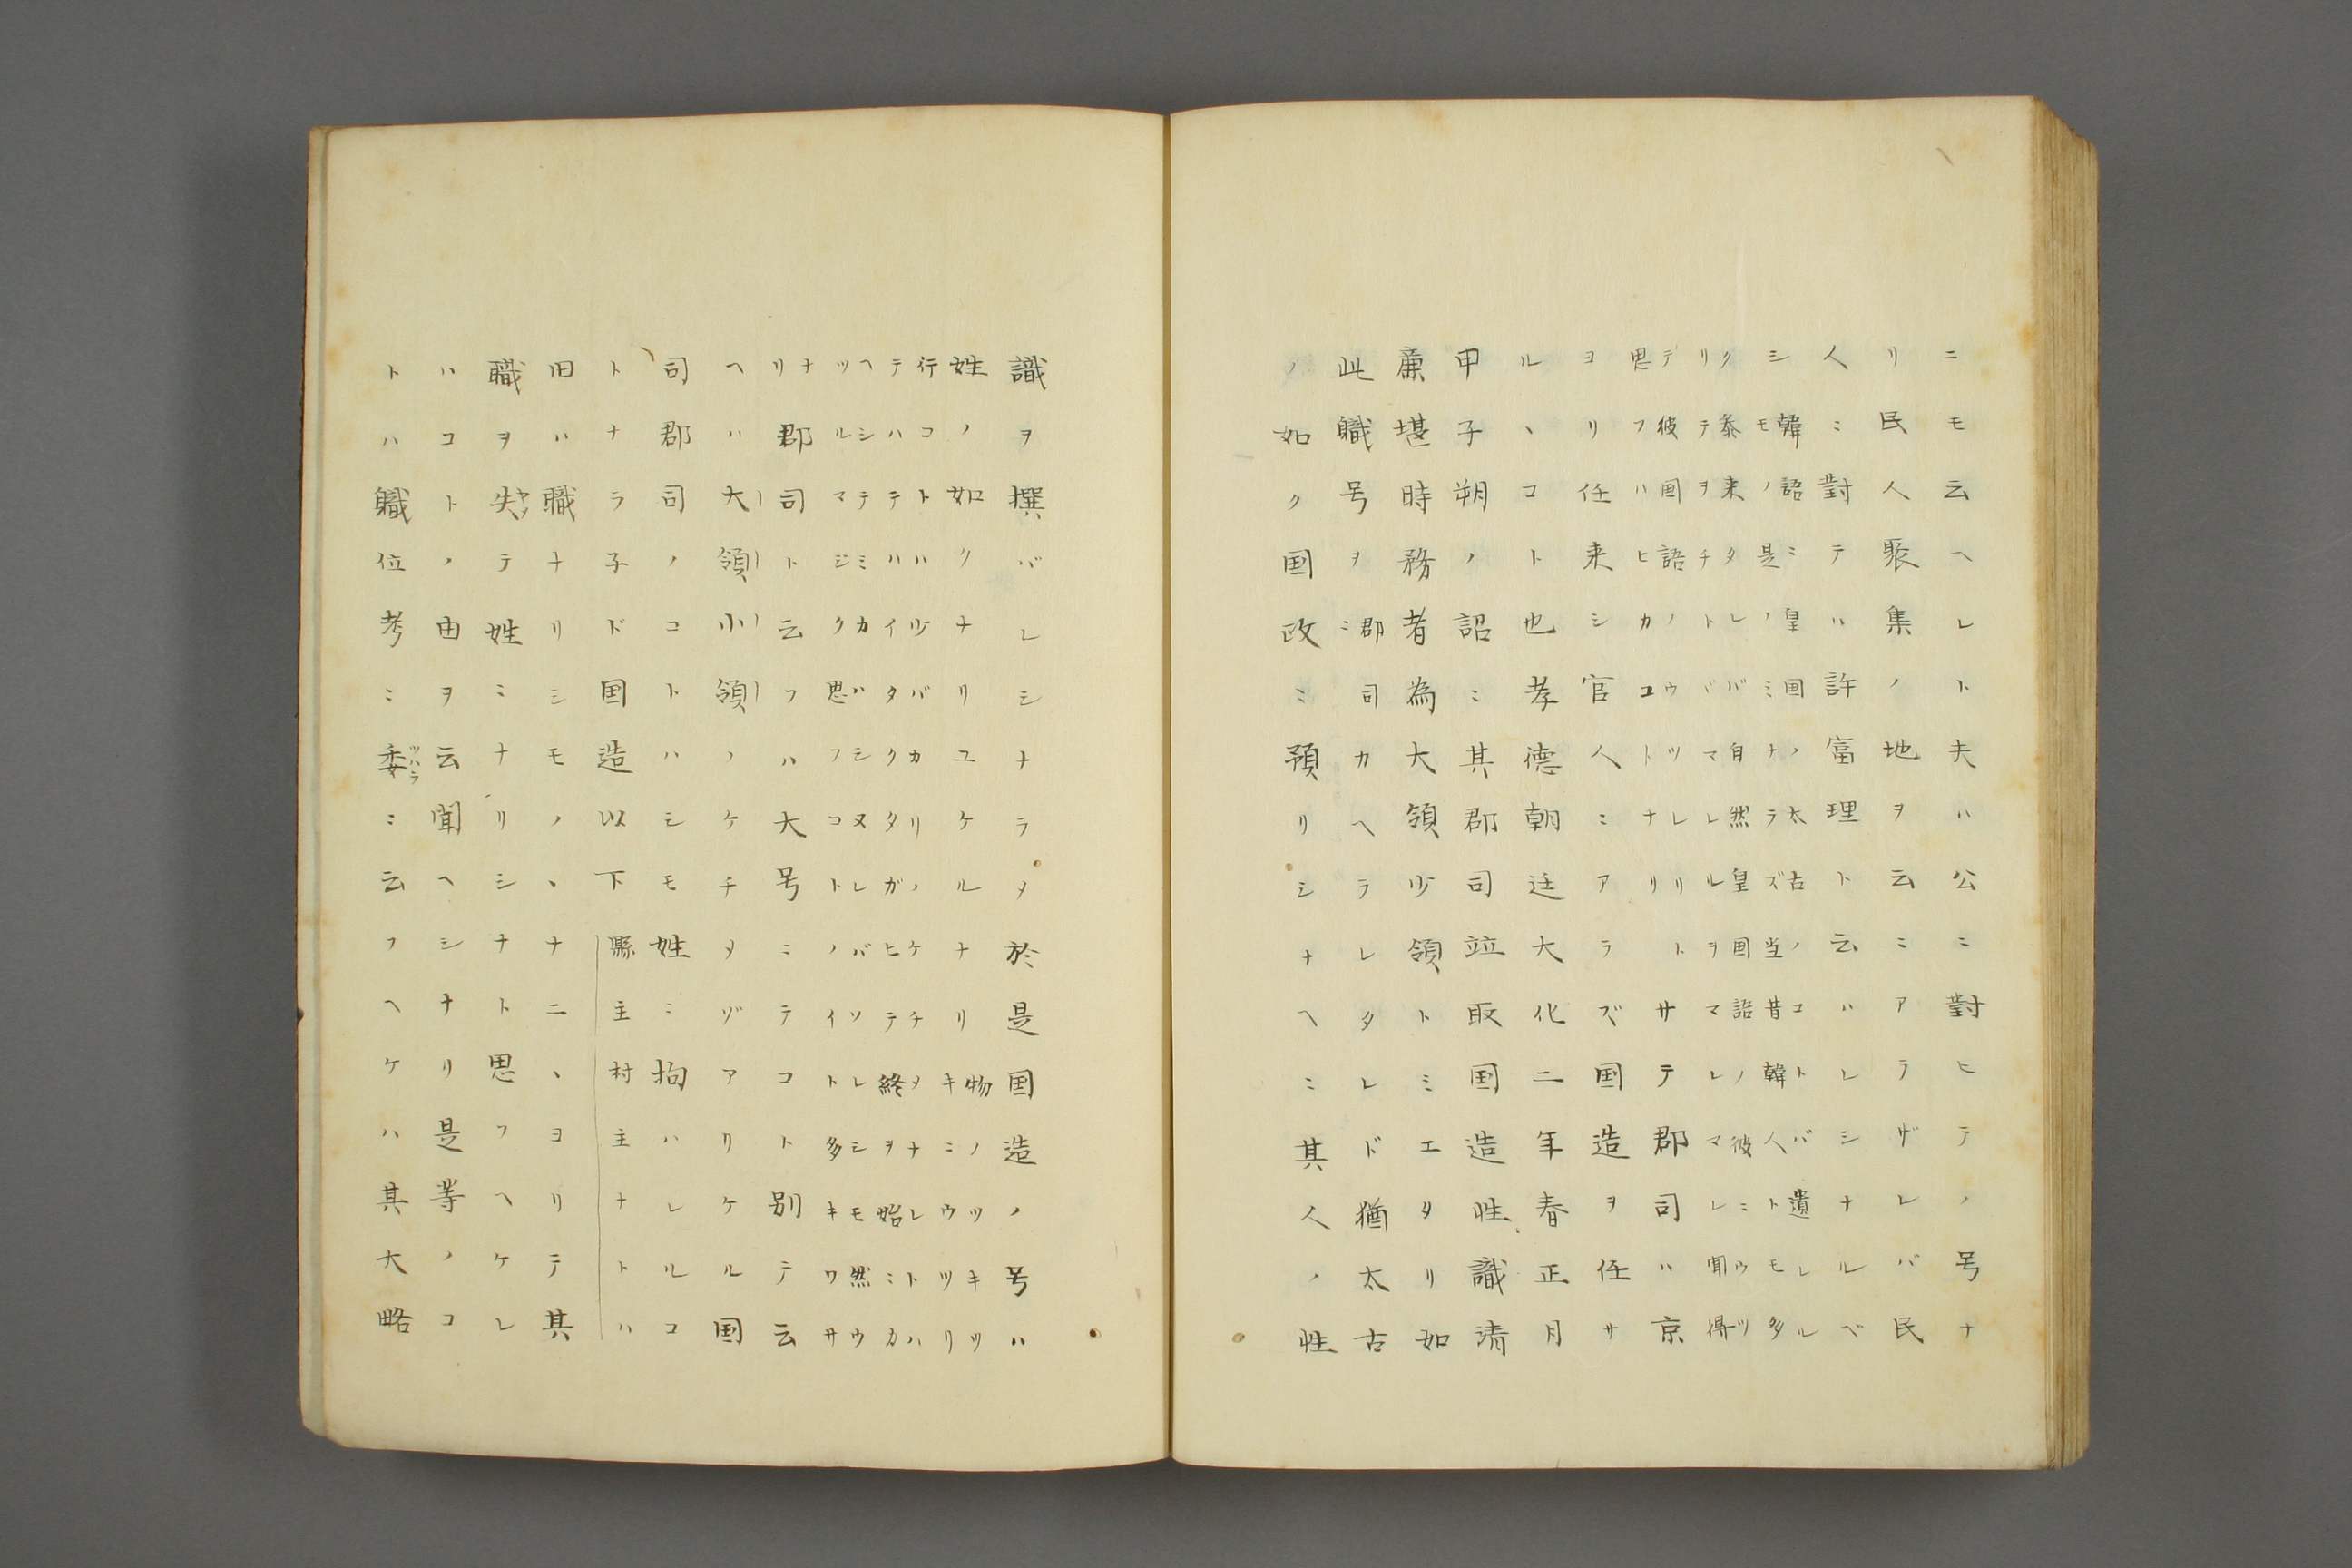 ニモ云ヘレト夫ハ公ニ對ヒテノ号ナ
リ民人聚集ノ地ヲ云ニアラザレバ民
人ニ對テハ許富理ト云ハレシナルベ
シ韓語ミ皇国ノ太古ノコトバ遺レル
モノ是ノミナラズ当昔韓人トモ多
ク泰来タレバ自然皇国詔ノ彼ニウツ
リテヲチトヾマレルヲマレマレ聞得
デ彼国語ノウツレリト
思フハヒカコトナリサテ郡司ハ京
ヨリ任来シ官人ニアラズ国造ヲ任サ
ルヽコト也孝徳朝廷大化二年春正月
甲子朔ノ詔ニ其郡司竝取国造性識清
廉堪時務者為大領少領トミエタリ如
此職号ヲ郡司ニカヘラレタレド猶太古
ノ如ク国政ニ預リシナヘニ其人ノ性
識ヲ撰バレシナラメ於是国造ノ号ハ
姓ノ如クナリユケルナリ物ノツキツ
キニウツリ
行コトハ少バカリノケチヲナレトハ
テハテハイタクタガヒテ終ヲ始ニカ
ヘシテミカハシヌレバソレシモ然ウ
ツルマジク思フコトノイト多キワサ
ナリ郡司ト云フハ大号ニテコト別テ云
ヘハ大領小領ノケチメゾアリケル国
司郡司ノコトハシモ姓ニ拘ハレルコ
トナラ子ド国造以下縣主村主ナトハ
旧ハ職ナリシモノヽナニヽヨリテ其
職ヲ失テ姓ニナリシナト思フヘケレ
ハコトノ由ヲ云聞ヘシナリ是等ノコ
トハ職位考ニ委ニ云フヘケハ其大略